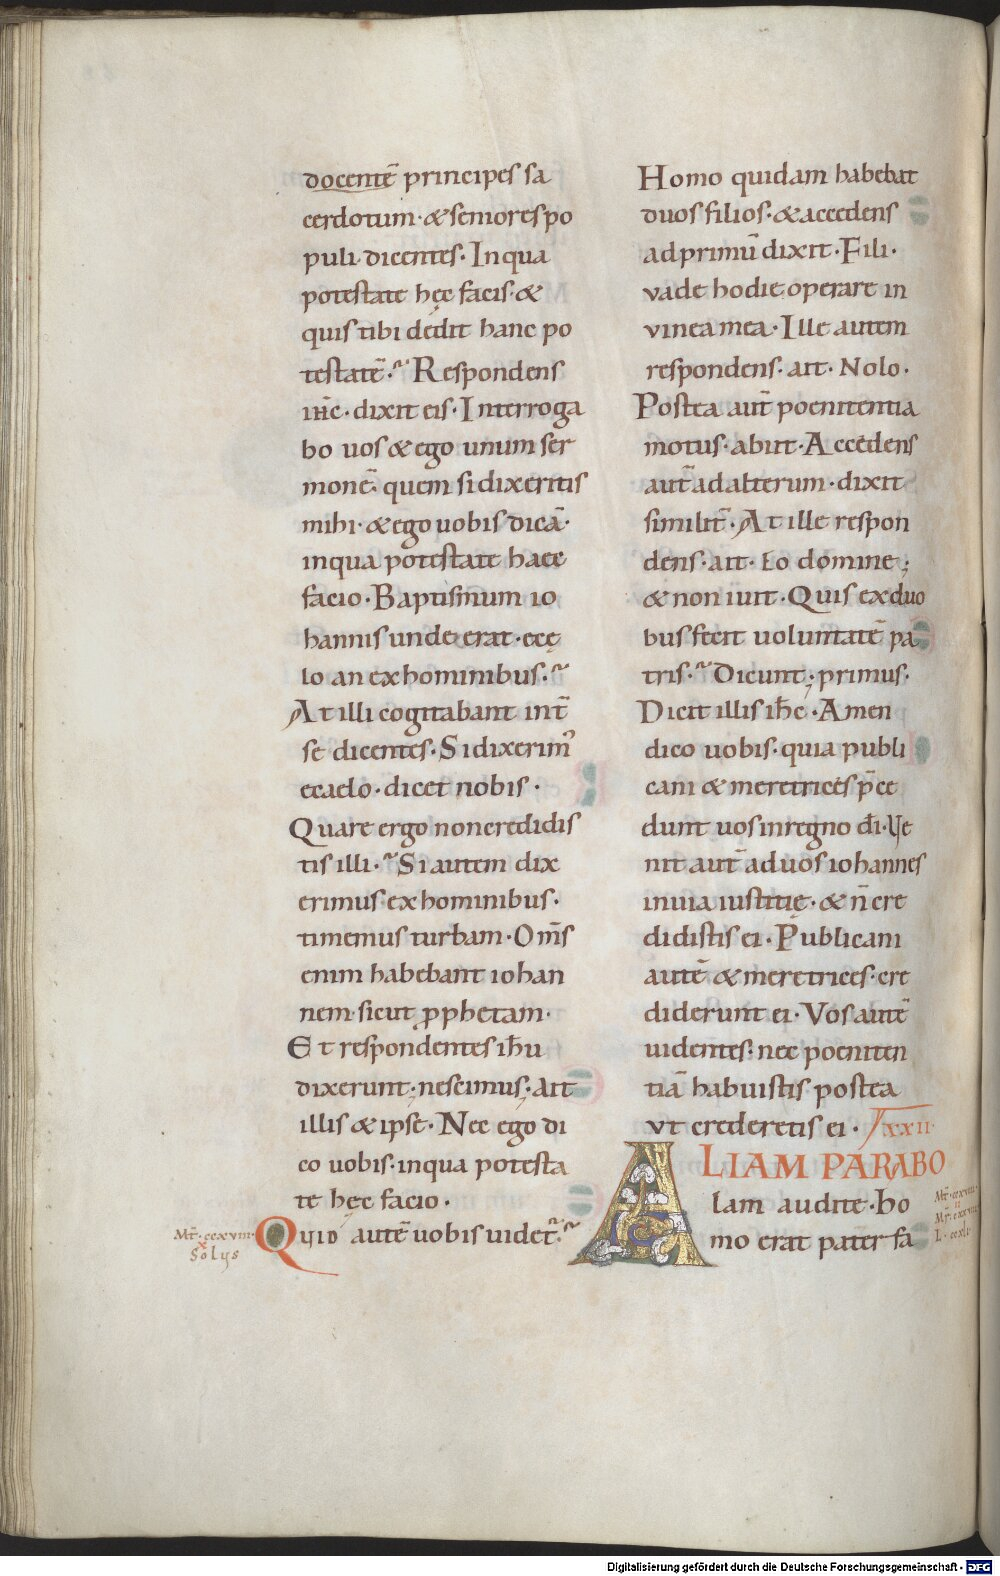 docentē principes sa
cerdotum· & seniores po
puli· dicentes· In qua
potestate hęc facis· &
quis tibi dedit hanc po
testatē·? Respondens
ih̄c· dixit eis· Interroga
bo uos & ego unum ser
monē· quem si dixeritis
mihi· & ego uobis dicā·
in qua potestate haec
facio· Baptismum io
hannis unde erat· e cę
lo an ex hominibus·?
At illi cogitabant int̄
se dicentes· Si dixerim᾽
e caelo· dicet nobis·
Quare ergo non credidis
tis illi·? Si autem dix
erimus ex hominibus·
timemus turbam· Om̄s
enim habebant iohan
nem· sicut ꝓphetam·
Et respondentes ih̄u
dixerunt; nescimus; Ait
illis & ipse· Nec ego di
co uobis· in qua potesta
te hęc facio·
Mt̄· ccxviii·
Solus
Quid autē uobis uidet̄·?
Homo quidam habebat
duos filios· & accedens
ad primū dixit· Fili·
vade hodie operare in
vinea mea· Ille autem
respondens· ait· Nolo·
Postea aut̄ poenitentia
motus· abiit· Accedens
aut̄ ad alterum· dixit
similit̄· At ille respon
dens· ait· Eo domine;
& non iuit· Quis ex duo
bus fecit uoluntatē pa
tris·? Dicunt; primus·
Dicit illis ih̄c· Amen
dico uobis· quia publi
cani & meretrices p̄ce
dunt uos in regno dī· Ve
nit aut̄ ad uos iohannes
in uia iustitię· & n̄ cre
didistis ei· Publicani
autē & meretrices· cre
diderunt ei· Vos autē
uidentes· nec poeniten
tiā habuistis postea
vt crederetis ei· lxxii
ALIAM PARABO
lam audite· Ho
mo erat pater fa
Digitalisierung gefördert durch die Deutsche Forschungsgemeinschaft - DFG